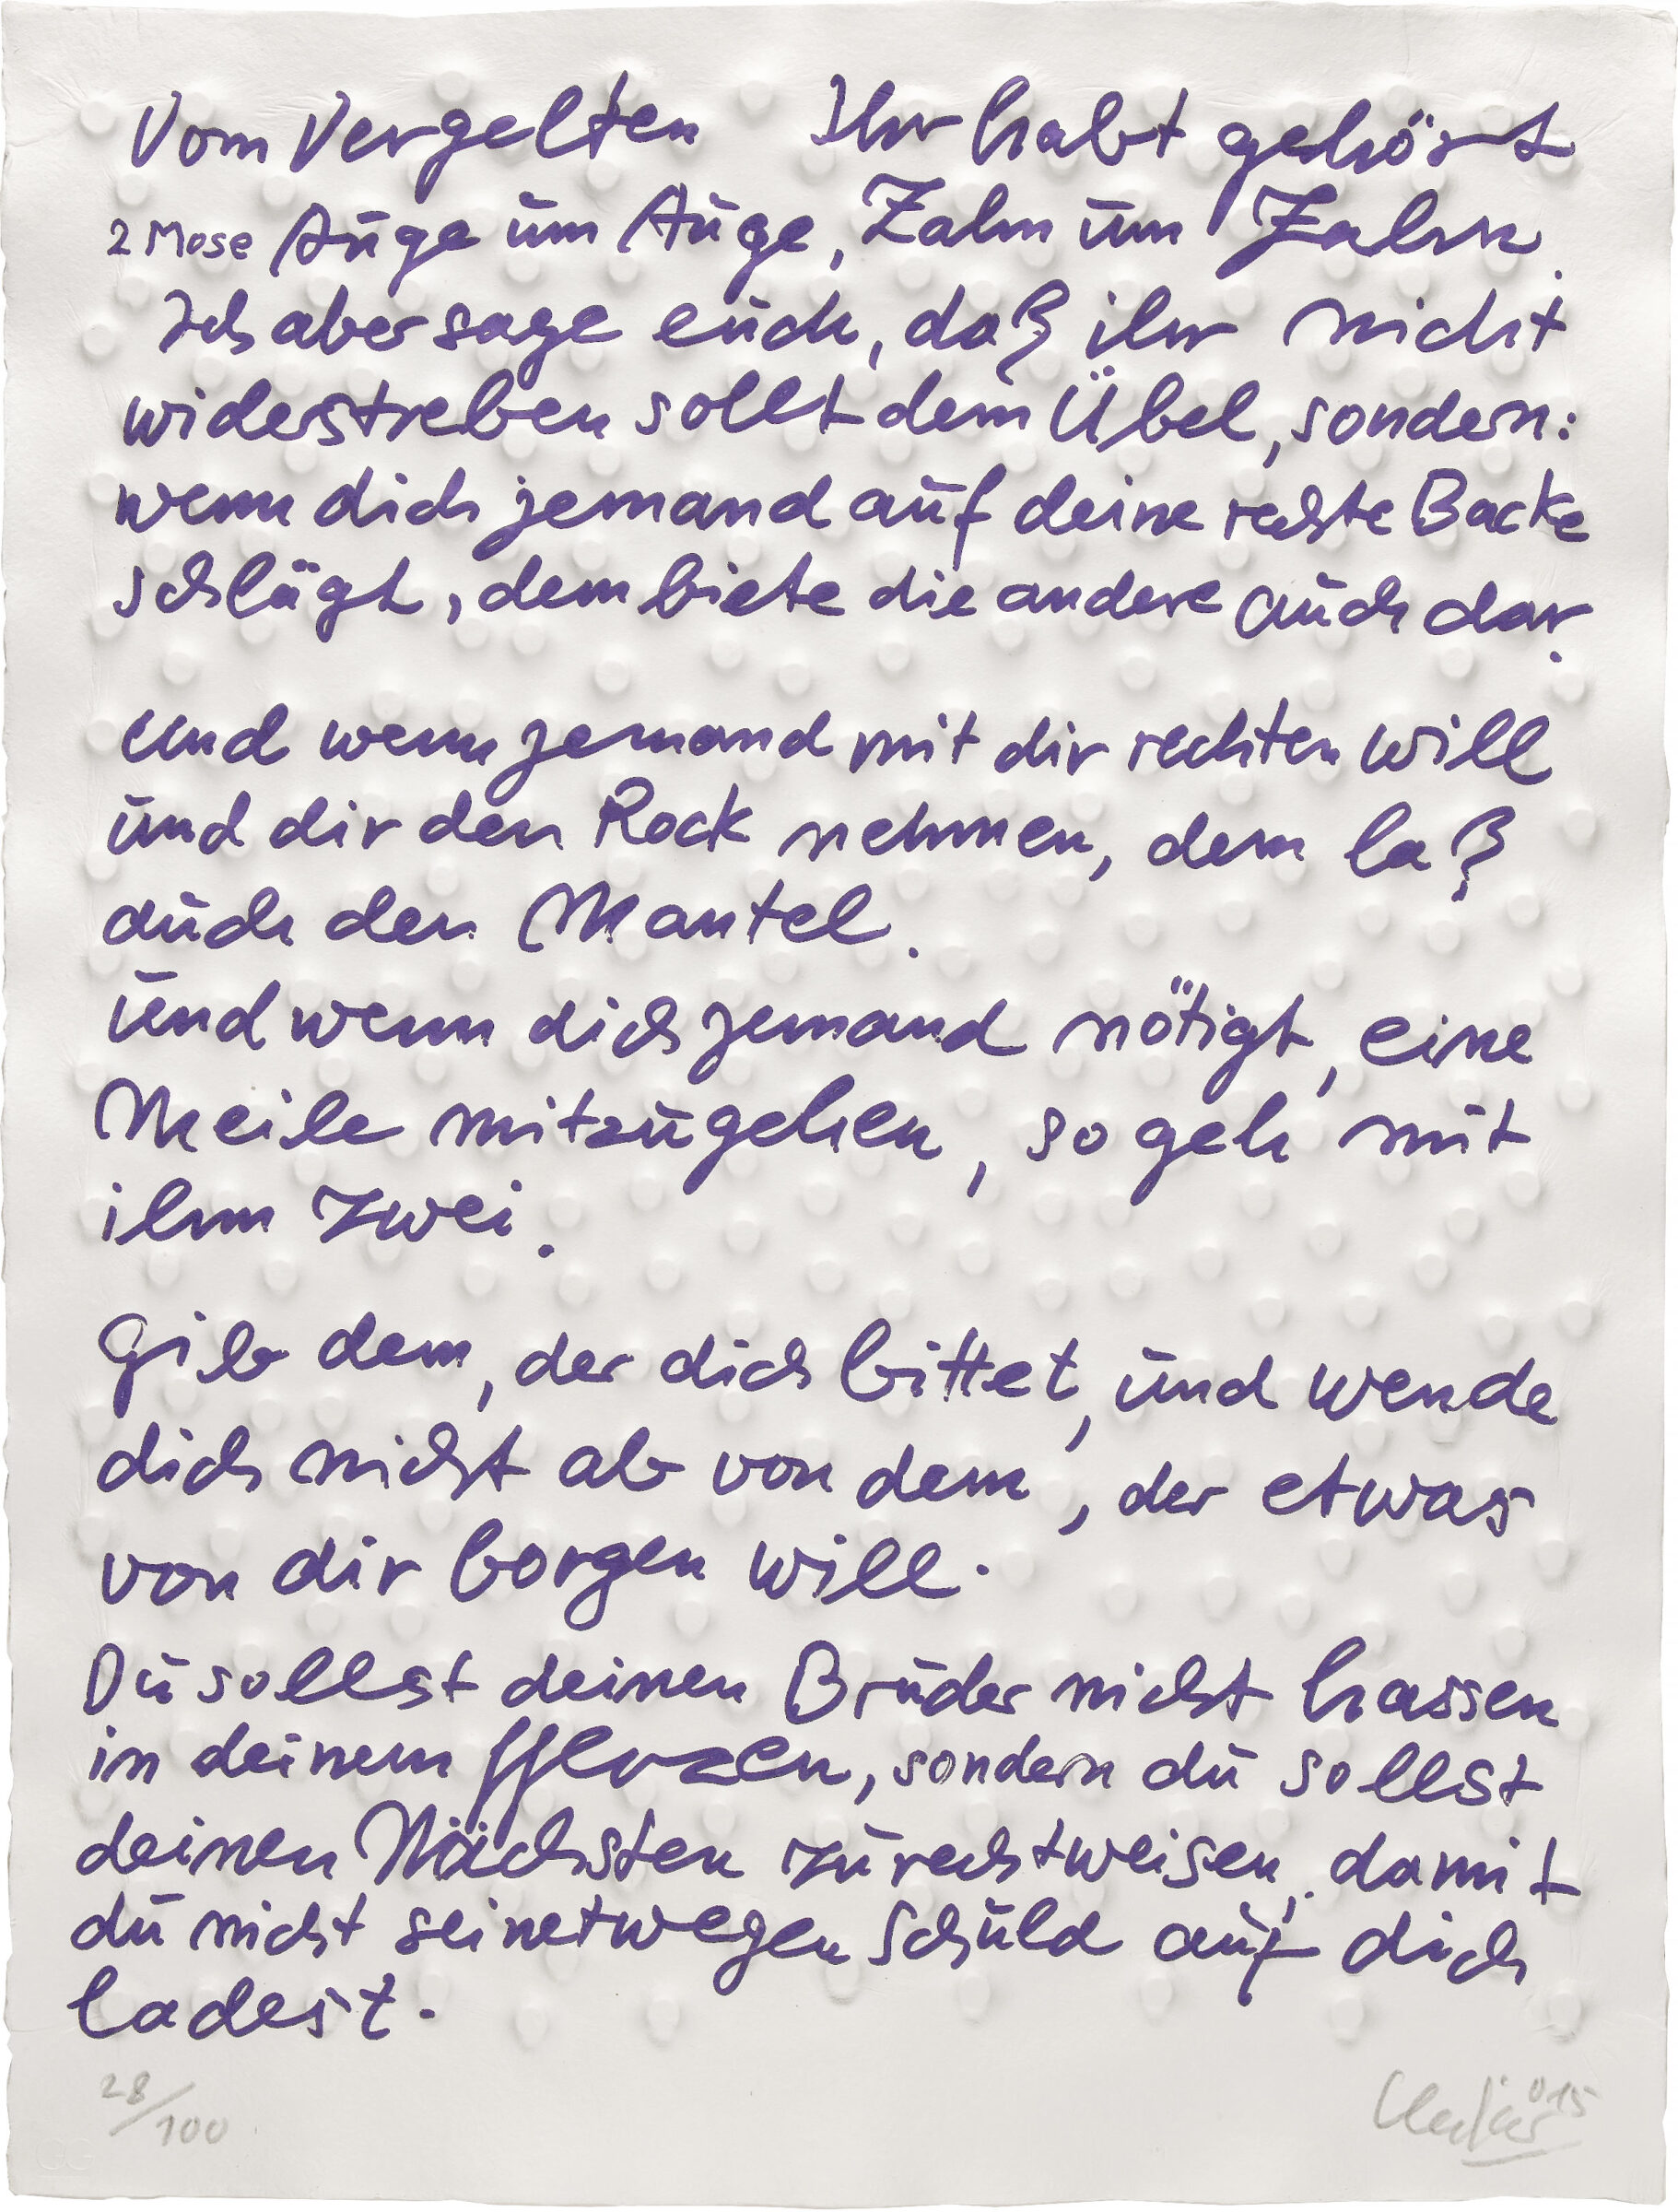 Vom Vergelten Ihr habt gehört
2 Mose Auge um Auge, Zahn um Zahn.
Ich aber sage euch, daß ihr nicht
widerstreben sollt dem Übel, sondern:
wenn dich jemand auf deine rechte Backe
schlägt, dem biete die andere auch dar.
Und wenn jemand mit dir rechten will
und dir den Rock nehmen, dem laß
auch den Mantel.
Und wenn dich jemand nötigt, eine
Meile mitzugehen, so geh mit
ihm zwei.
Gib dem, der dich bittet, und wende
dich nicht ab von dem, der etwas
von dir borgen will.
Du sollst deinen Bruder nicht hassen
in deinem Herzen, sondern du sollst
deinen Nächsten zurechtweisen, damit
du nicht seinetwegen Schuld auf dich
ladest.
28/100
015